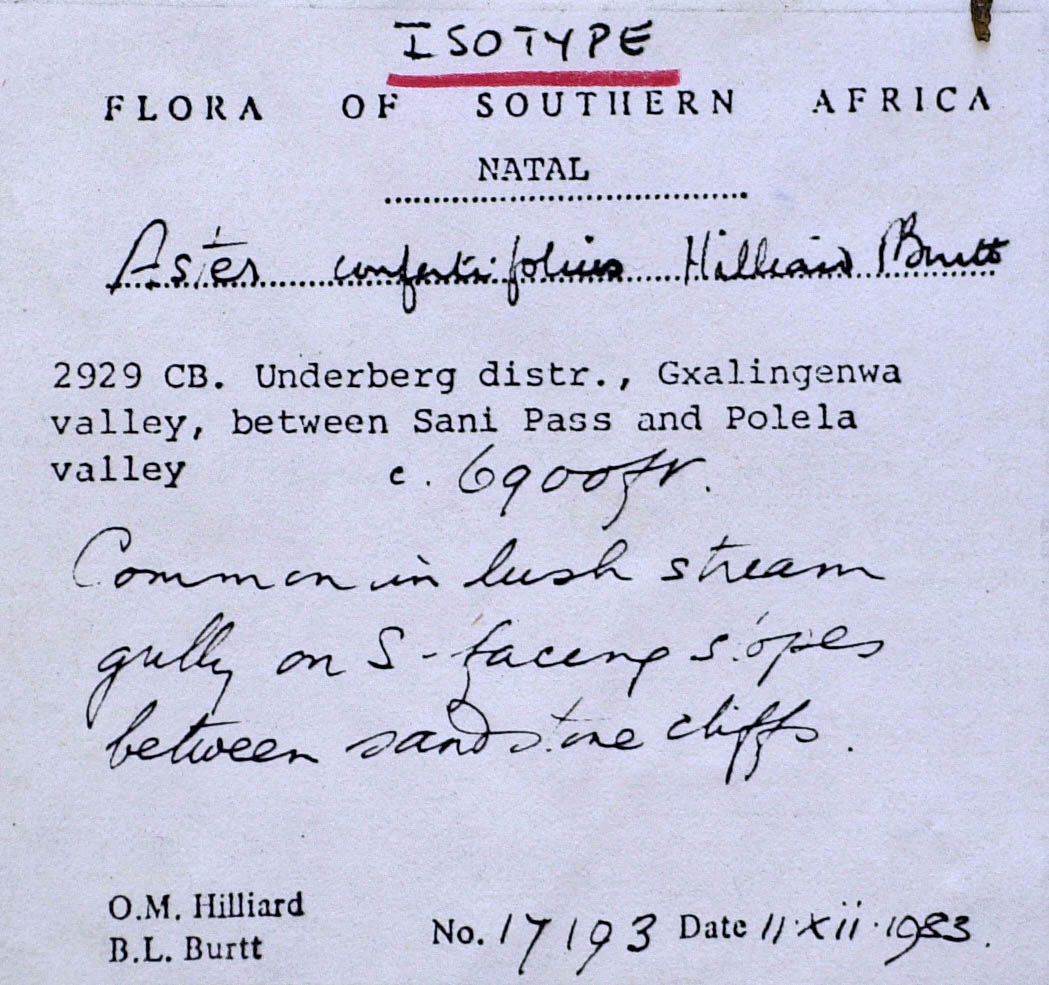 ISOTYPE
FLORA OF SOUTHERN AFRICA
NATAL
Aster confertifolius Hilliard & Burtt
2929 CB. Underberg distr., Gxalingenwa
valley, between Sani Pass and Polela
valley c. 6900ft.
Common in lush stream
gully on S-facing slopes
between sandstone cliffs.
O.M. Hilliard
B.L. Burtt
No. 17193 Date 11·xii·1983.